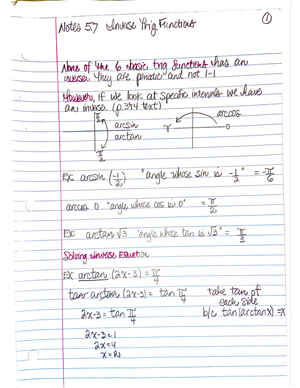 Notes 5.7 Inverse Trig Functions
1
None of the 6 basic trig functions has an
inverse. They are periodic and not 1-1
However, if we look at specific intervals we have
an inverse. (p.394 text)
π/2
arcsin
arctan
-π/2
arccos
π 0
Ex: arcsin (-1/2) "angle whose sin is -1/2" = -π/6
arccos 0 "angle whose cos is 0" = π/2
Ex: arctan √3 "angle whose tan is √3" = π/3
Solving Inverse Equation
Ex arctan (2x-3) = π/4
tan arctan (2x-3) = tan π/4 take tan of
each side
2x-3 = tan π/4 b/c tan(arctanx)=x
2x-3=1
2x=4
x=2